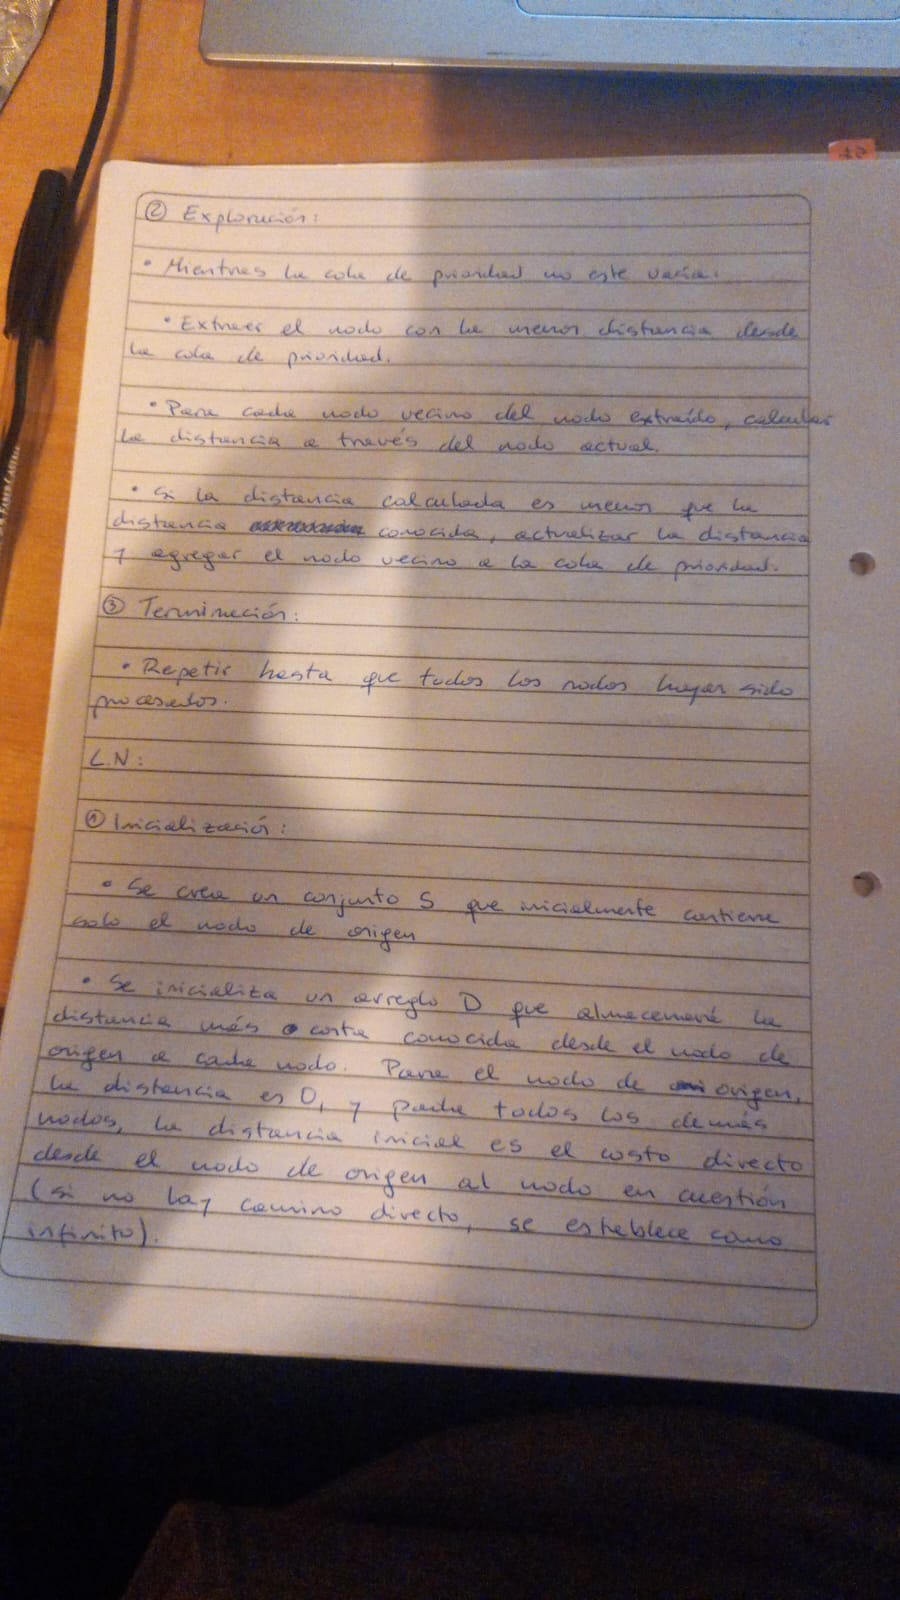 ② Exploración:
• Mientras la cola de prioridad no este vacía:
• Extraer el nodo con la menor distancia desde
la cola de prioridad.
• Para cada nodo vecino del nodo extraído, calcular
la distancia a través del nodo actual.
• Si la distancia calculada es menor que la
distancia conocida, actualizar la distancia
y agregar el nodo vecino a la cola de prioridad.
③ Terminación:
• Repetir hasta que todos los nodos hayan sido
procesados.
L.N:
① Inicialización:
• Se crea un conjunto S que inicialmente contiene
solo el nodo de origen
• Se inicializa un arreglo D que almacenará la
distancia más corta conocida desde el nodo de
origen a cada nodo. Para el nodo de origen,
la distancia es 0, y para todos los demás
nodos, la distancia inicial es el costo directo
desde el nodo de origen al nodo en cuestión
(si no hay camino directo, se establece como
infinito).